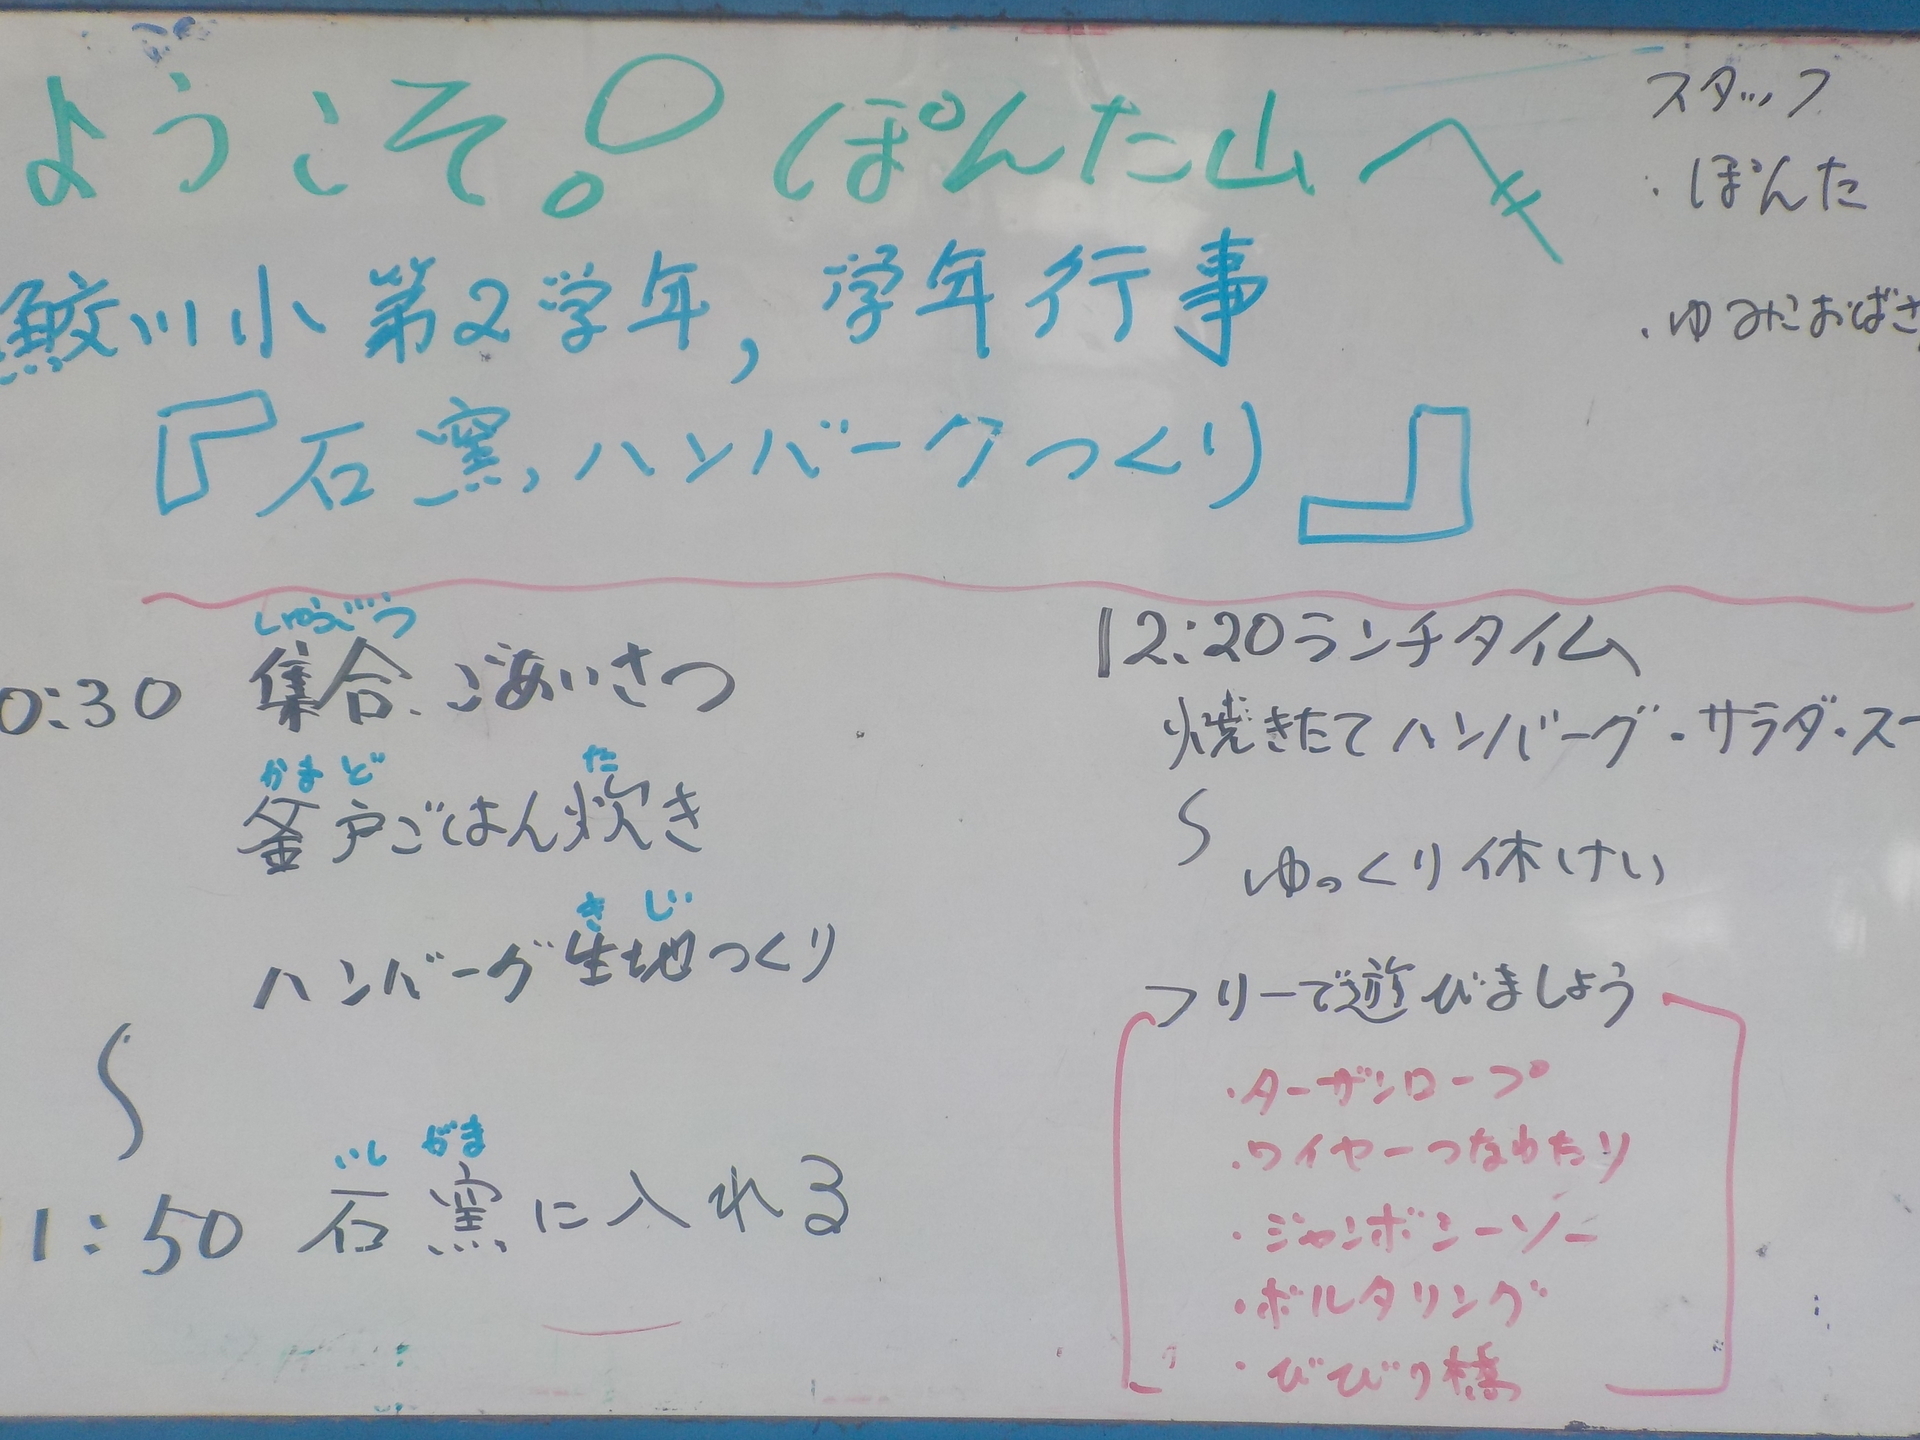 ようこそ!ぽんた山へ
鮫川小第2学年,学年行事
『石窯,ハンバーグつくり』
スタッフ
・ぽんた
・ゆみこおばさ
しゅうごう
0:30 集合、ごあいさつ
かまど た
釜戸ごはん炊き
きじ
ハンバーグ生地つくり
〜
いしがま
1:50 石窯に入れる
12:20ランチタイム
焼きたてハンバーグ・サラダ・スー
〜
ゆっくり休けい
フリーで遊びましょう
・ターザンロープ
・ワイヤーつなわたり
・ジャンボシーソー
・ボルタリング
・びびり橋